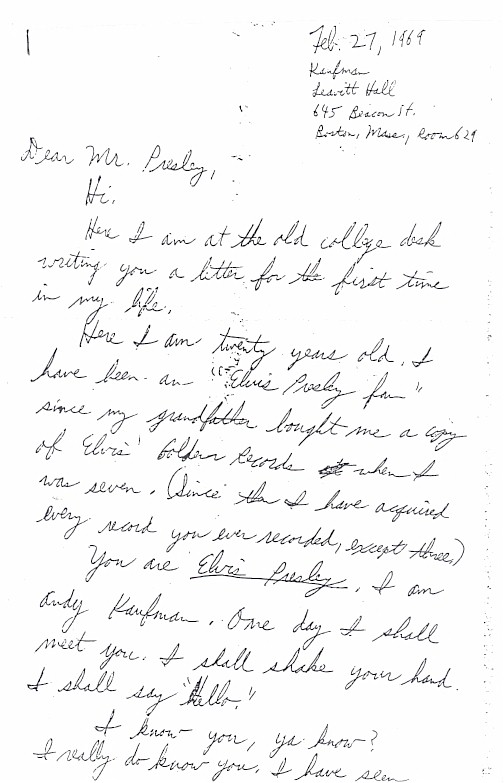 Feb. 27, 1969
Kaufman
Leavitt Hall
645 Beacon St.
Boston, Mass, Room 629
Dear Mr. Presley,
Hi.
Here I am at the old college desk
writing you a letter for the first time
in my life.
Here I am twenty years old. I
have been an "Elvis Presley fan"
since my grandfather bought me a copy
of Elvis' Golden Records when I
was seven. (Since then I have acquired
every record you ever recorded, except three)
You are Elvis Presley. I am
Andy Kaufman. One day I shall
meet you. I shall shake your hand.
I shall say "Hello."
I know you, ya know?
I really do know you. I have seen